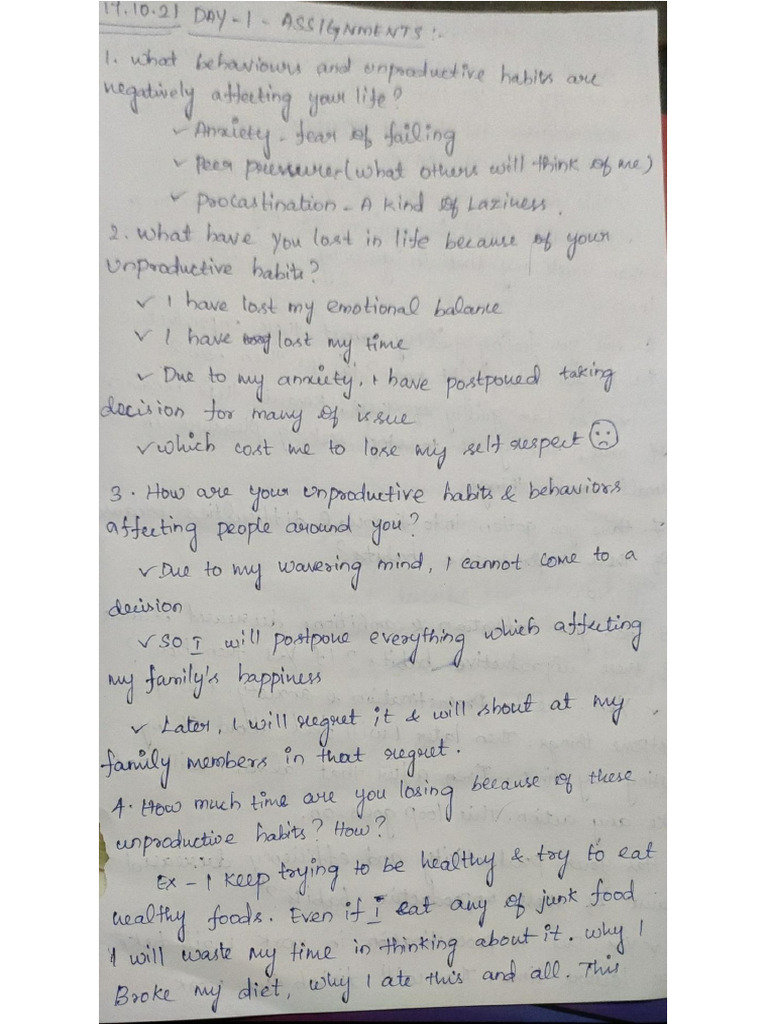 17.10.21 DAY-1 - ASSIGNMENTS :-
1. What behaviours and unproductive habits are
negatively affecting your life?
✓ Anxiety - fear of failing
✓ Peer pressure (what others will think of me)
✓ procastination - A kind of Laziness.
2. What have you lost in life because of your
unproductive habits?
✓ I have lost my emotional balance
✓ I have lost my time
✓ Due to my anxiety, I have postponed taking
decision for many of issue
✓ which cost me to lose my self respect ☹
3. How are your unproductive habits & behaviors
affecting people around you?
✓ Due to my wavering mind, I cannot come to a
decision
✓ So I will postpone everything which affecting
my family's happiness
✓ Later, I will regret it & will shout at my
family members in that regret.
4. How much time are you losing because of these
unproductive habits? How?
Ex - I keep trying to be healthy & try to eat
healthy foods. Even if I eat any of junk food
I will waste my time in thinking about it. why I
Broke my diet, why I ate this and all. This